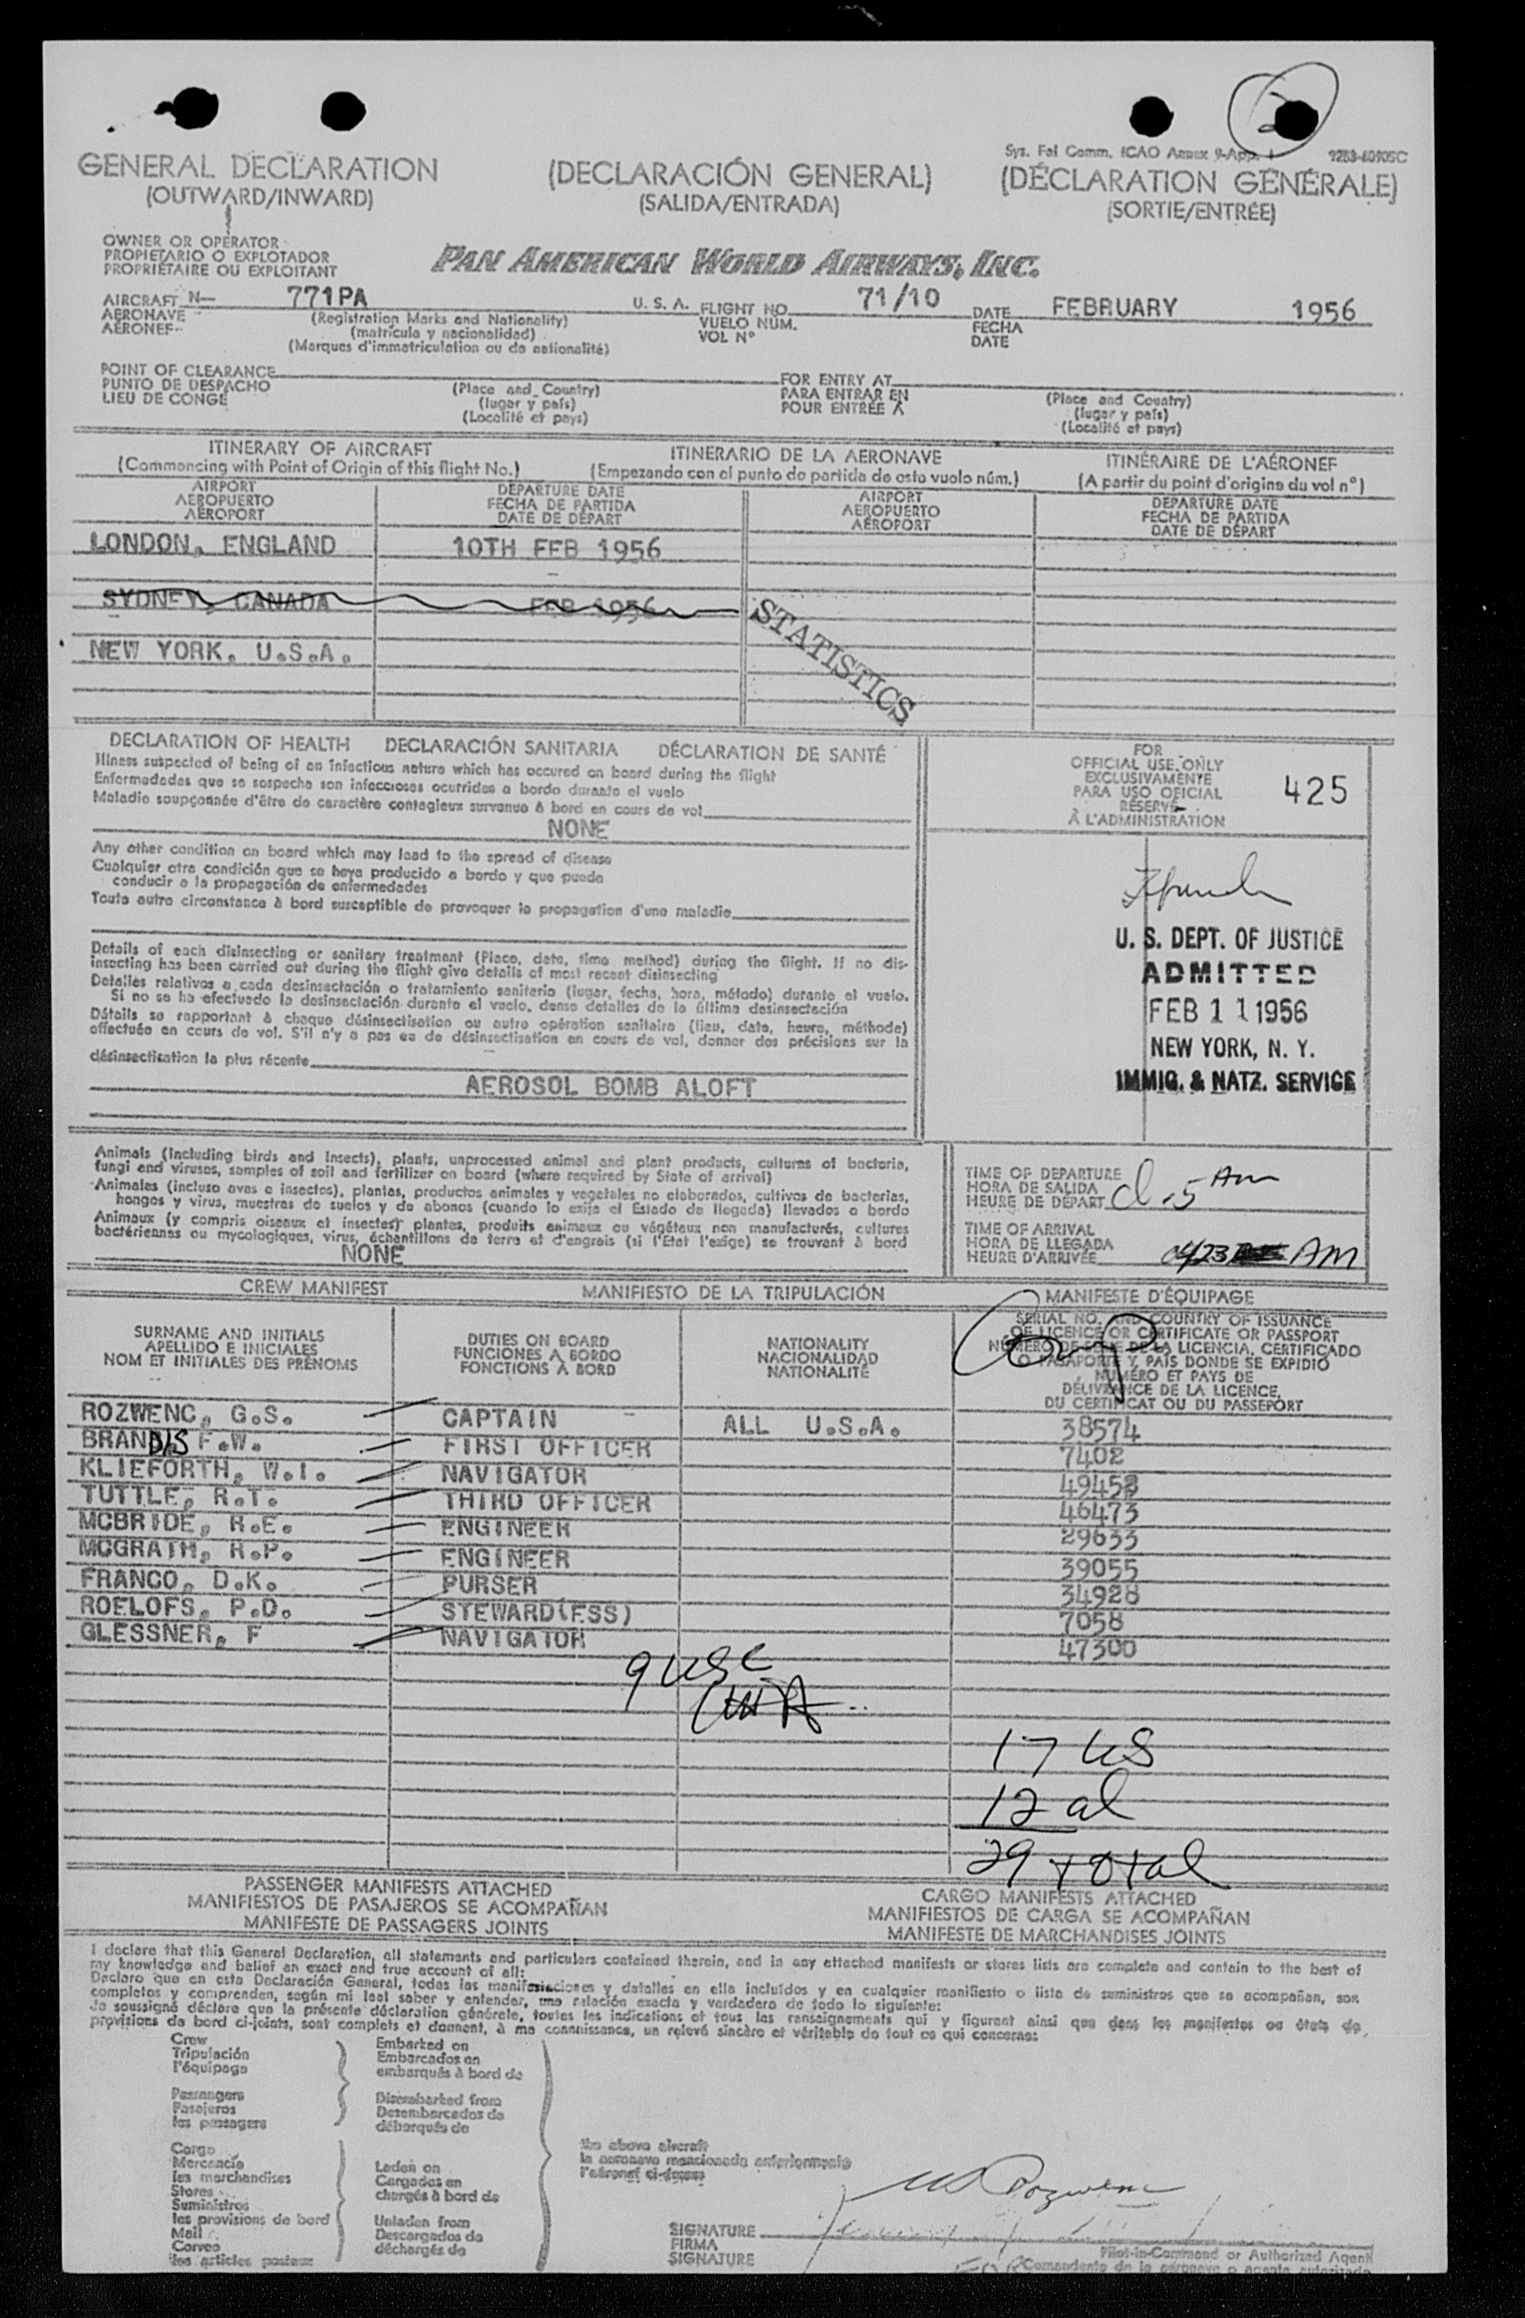 2
Sys. Fal Comm. ICAO Annex 9-App. 1
9283-60905C
GENERAL DECLARATION
(OUTWARD/INWARD)
(DECLARACIÓN GENERAL)
(SALIDA/ENTRADA)
(DÉCLARATION GÉNÉRALE)
(SORTIE/ENTRÉE)
OWNER OR OPERATOR
PROPIETARIO O EXPLOTADOR
PROPRIÉTAIRE OU EXPLOITANT
PAN AMERICAN WORLD AIRWAYS, INC.
AIRCRAFT N— 771PA U. S. A. FLIGHT NO. 71/10 DATE FEBRUARY 1956
AERONAVE (Registration Marks and Nationality) VUELO NÚM. FECHA
AÉRONEF (matrícula y nacionalidad) VOL N° DATE
(Marques d'immatriculation ou de nationalité)
POINT OF CLEARANCE FOR ENTRY AT
PUNTO DE DESPACHO (Place and Country) PARA ENTRAR EN (Place and Country)
LIEU DE CONGÉ (lugar y país) POUR ENTRÉE À (lugar y país)
(Localité et pays) (Localité et pays)
ITINERARY OF AIRCRAFT ITINERARIO DE LA AERONAVE ITINÉRAIRE DE L'AÉRONEF
(Commencing with Point of Origin of this flight No.) (Empezando con el punto de partida de este vuelo núm.) (A partir du point d'origine du vol n°)
AIRPORT DEPARTURE DATE AIRPORT DEPARTURE DATE
AEROPUERTO FECHA DE PARTIDA AEROPUERTO FECHA DE PARTIDA
AÉROPORT DATE DE DÉPART AÉROPORT DATE DE DÉPART
LONDON, ENGLAND 10TH FEB 1956
SYDNEY, CANADA FEB 1956
STATISTICS
NEW YORK, U.S.A.
DECLARATION OF HEALTH DECLARACIÓN SANITARIA DÉCLARATION DE SANTÉ
Illness suspected of being of an infectious nature which has occured on board during the flight
Enfermedades que se sospecha son infecciosas ocurridas a bordo durante el vuelo
Maladie soupçonnée d'être de caractère contagieux survenue à bord en cours de vol
NONE
Any other condition on board which may lead to the spread of disease
Cualquier otra condición que se haya producido a bordo y que pueda
conducir a la propagación de enfermedades
Toute autre circonstance à bord susceptible de provoquer la propagation d'une maladie
Details of each disinsecting or sanitary treatment (Place, date, time method) during the flight. If no dis-
insecting has been carried out during the flight give details of most recent disinsecting
Detalles relativos a cada desinsectación o tratamiento sanitario (lugar, fecha, hora, método) durante el vuelo.
Si no se ha efectuado la desinsectación durante el vuelo, dense detalles de la última desinsectación
Détails se rapportant à chaque désinsectisation ou autre opération sanitaire (lieu, date, heure, méthode)
effectuée en cours de vol. S'il n'y a pas eu de désinsectisation en cours de vol, donner des précisions sur la
désinsectisation la plus récente
AEROSOL BOMB ALOFT
FOR
OFFICIAL USE ONLY
EXCLUSIVAMENTE
PARA USO OFICIAL
RÉSERVÉ
À L'ADMINISTRATION
425
U. S. DEPT. OF JUSTICE
ADMITTED
FEB 11 1956
NEW YORK, N. Y.
IMMIG. & NATZ. SERVICE
Animals (including birds and insects), plants, unprocessed animal and plant products, cultures of bacteria,
fungi and viruses, samples of soil and fertilizer on board (where required by State of arrival)
Animales (incluso aves e insectos), plantas, productos animales y vegetales no elaborados, cultivos de bacterias,
hongos y virus, muestras de suelos y de abonos (cuando lo exija el Estado de llegada) llevados a bordo
Animaux (y compris oiseaux et insectes) plantes, produits animaux ou végétaux non manufacturés, cultures
bactériennes ou mycologiques, virus, échantillons de terre et d'engrais (si l'Etat l'exige) se trouvant à bord
NONE
TIME OF DEPARTURE
HORA DE SALIDA
HEURE DE DÉPART
AM
TIME OF ARRIVAL
HORA DE LLEGADA
HEURE D'ARRIVÉE 0423 AM
CREW MANIFEST MANIFIESTO DE LA TRIPULACIÓN MANIFESTE D'ÉQUIPAGE
SURNAME AND INITIALS
APELLIDO E INICIALES
NOM ET INITIALES DES PRÉNOMS
DUTIES ON BOARD
FUNCIONES A BORDO
FONCTIONS À BORD
NATIONALITY
NACIONALIDAD
NATIONALITÉ
SERIAL NO. AND COUNTRY OF ISSUANCE
OF LICENCE OR CERTIFICATE OR PASSPORT
NÚMERO DE SERIE DE LA LICENCIA, CERTIFICADO
O PASAPORTE Y PAÍS DONDE SE EXPIDIÓ
NUMÉRO ET PAYS DE
DÉLIVRANCE DE LA LICENCE,
DU CERTIFICAT OU DU PASSEPORT
ROZWENC, G.S. CAPTAIN ALL U.S.A. 38574
BRANDIS F.W. FIRST OFFICER 7402
KLIEFORTH, W.I. NAVIGATOR 49458
TUTTLE, R.T. THIRD OFFICER 46473
MCBRIDE, R.E. ENGINEER 29633
MCGRATH, R.P. ENGINEER 39055
FRANCO, D.K. PURSER 34928
ROELOFS, P.D. STEWARD(ESS) 7058
GLESSNER, F NAVIGATOR 47300
9 USC
17 US
12 al
29 total
PASSENGER MANIFESTS ATTACHED
MANIFIESTOS DE PASAJEROS SE ACOMPAÑAN
MANIFESTE DE PASSAGERS JOINTS
CARGO MANIFESTS ATTACHED
MANIFIESTOS DE CARGA SE ACOMPAÑAN
MANIFESTE DE MARCHANDISES JOINTS
I declare that this General Declaration, all statements and particulars contained therein, and in any attached manifests or stores lists are complete and contain to the best of
my knowledge and belief an exact and true account of all:
Declaro que en esta Declaración General, todas las manifestaciones y detalles en ella incluídos y en cualquier manifiesto o lista de suministros que se acompañan, son
completos y comprenden, según mi leal saber y entender, una relación exacta y verdadera de todo lo siguiente:
Je soussigné déclare que la présente déclaration générale, toutes les indications et tous les renseignements qui y figurent ainsi que dans les manifestes ou états de
provisions de bord ci-joints, sont complets et donnent, à ma connaissance, un relevé sincère et véritable de tout ce qui concerne:
Crew
Tripulación
l'équipage
Passengers
Pasajeros
les passagers
Cargo
Mercancía
les marchandises
Stores
Suministros
les provisions de bord
Mail
Correo
les articles postaux
Embarked on
Embarcados en
embarqués à bord de
Disembarked from
Desembarcados de
débarqués de
Laden on
Cargadas en
chargés à bord de
Unladen from
Descargados de
déchargés de
the above aircraft
la aeronave mencionada anteriormente
l'aéronef ci-dessus
SIGNATURE
FIRMA
SIGNATURE
Pilot-in-Command or Authorized Agent
FOR Comandante de la aeronave o agente autorizado